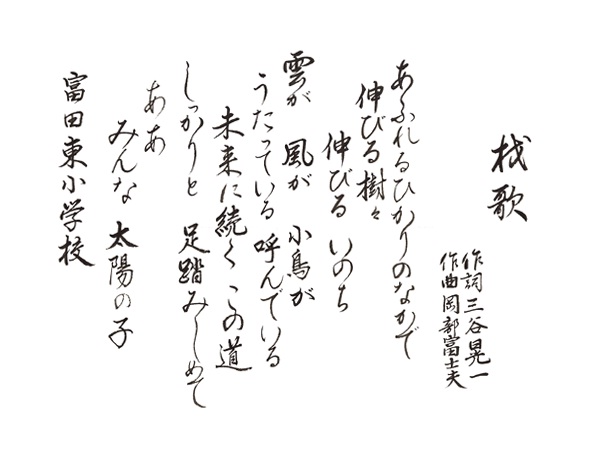 校歌
作詞 三谷晃一
作曲 岡部富士夫
あふれるひかりのなかで
伸びる樹々
伸びる いのち
雲が 風が 小鳥が
うたっている 呼んでいる
未来に続く この道
しっかりと 足踏みしめて
ああ
みんな 太陽の子
富田東小学校